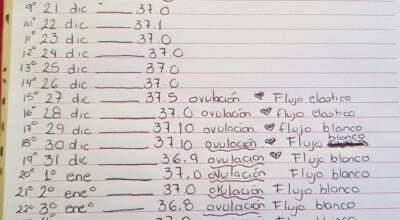 9° 21 dic ____ 37.0
10° 22 dic ____ 37.1
11° 23 dic ____ 37.0
12° 24 dic ____ 37.0
13° 25 dic ____ 37.0
14° 26 dic ____ 37.0
15° 27 dic ____ 37.5 ovulación ♥ Flujo elastico
16° 28 dic ____ 37.0 ovulación ♥ flujo elastico
17° 29 dic ____ 37.10 ovulacion ♥ flujo blanco
18° 30 dic ____ 37.10 ovulación ♥ Flujo blanco
19° 31 dic ____ 36.9 ovulación ♥ Flujo blanco
20° 1° ene ____ 37.0 ovulación Flujo blanco
21° 2° ene° ____ 37.0 ovulación Flujo blanco
22° 3° ene ____ 36.8 ovulación Flujo blanco